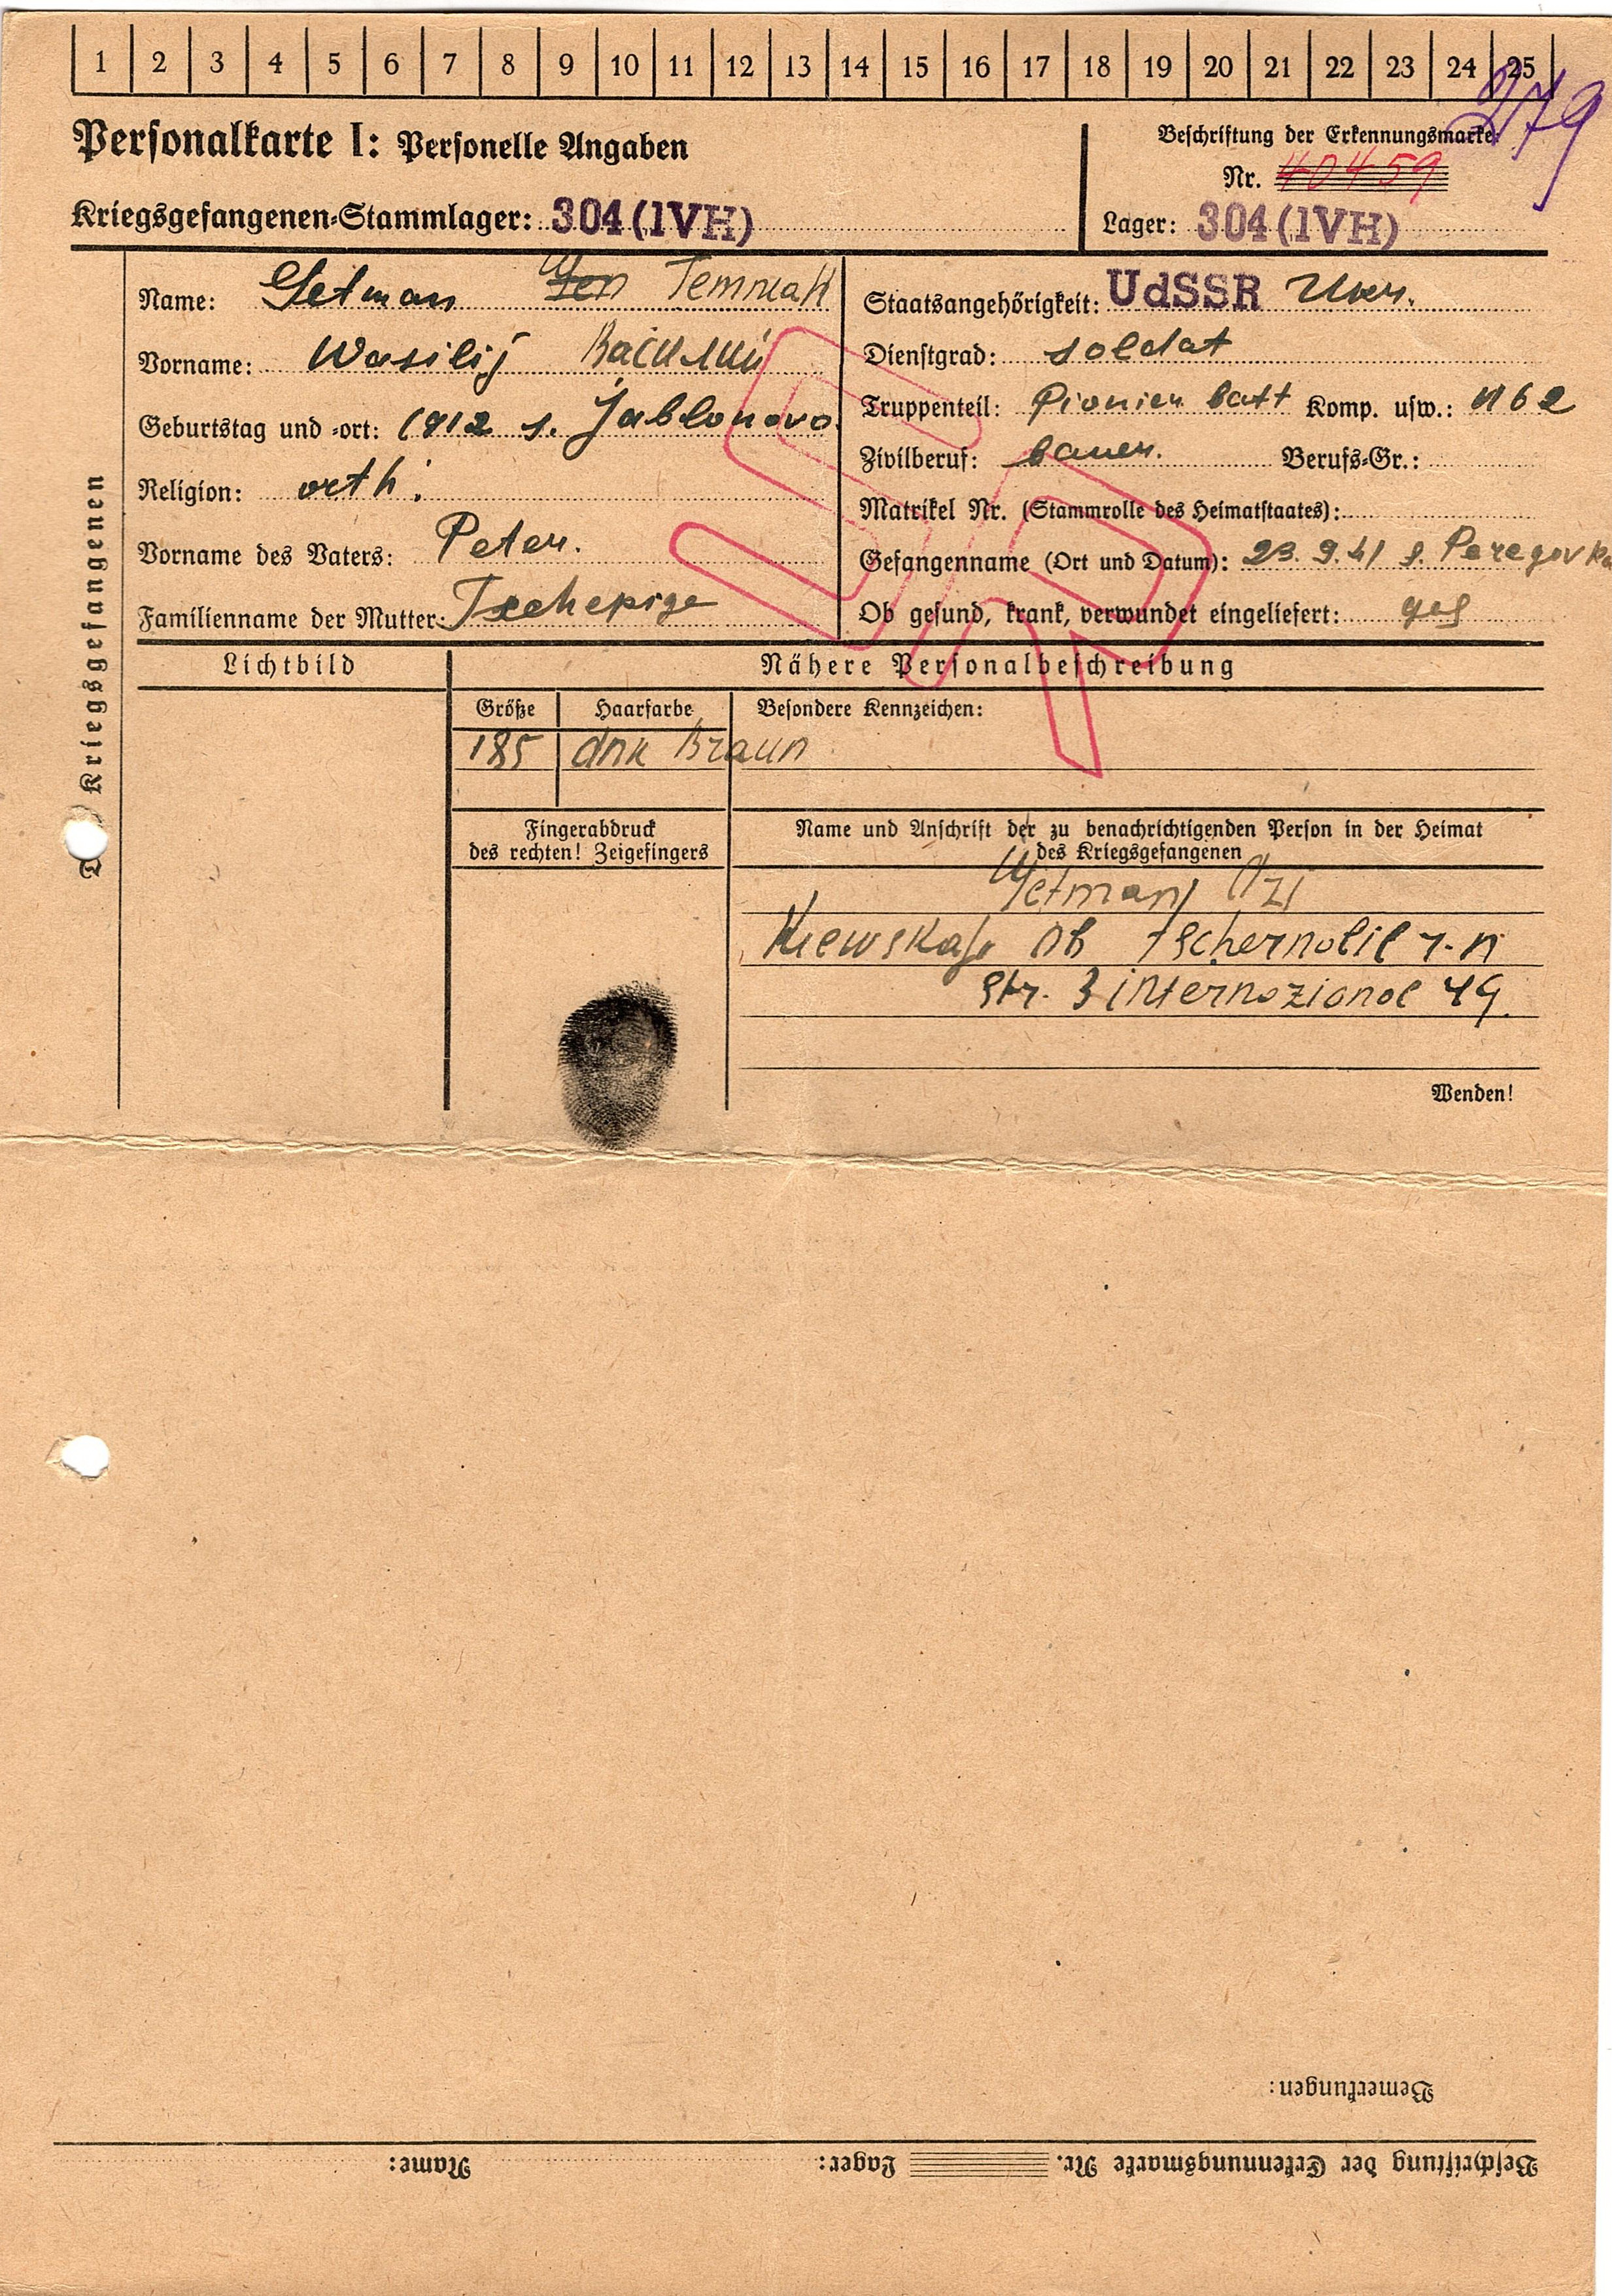 1 2 3 4 5 6 7 8 9 10 11 12 13 14 15 16 17 18 19 20 21 22 23 24 25
279
Personalkarte I: Personelle Angaben
Kriegsgefangenen-Stammlager: 304 (IVH)
Beschriftung der Erkennungsmarke
Nr. 40459
Lager: 304 (IVH)
Kriegsgefangenen
Name: Getman Гетман
Vorname: Wasilij Василий
Geburtstag und -ort: 1912 s. Jablonovo
Religion: orth.
Vorname des Vaters: Peter.
Familienname der Mutter:
Staatsangehörigkeit: UdSSR Ukr.
Dienstgrad: soldat
Truppenteil: Pionier batt Komp. usw.: N 62
Zivilberuf: bauer. Berufs-Gr.:
Matrikel Nr. (Stammrolle des Heimatstaates):
Gefangenname (Ort und Datum): 23.9.41 s. Peregovka
Ob gesund, krank, verwundet eingeliefert: ges
Lichtbild
Nähere Personalbeschreibung
Größe
Haarfarbe
Besondere Kennzeichen:
185
dnk Braun
Fingerabdruck
des rechten! Zeigefingers
Name und Anschrift der zu benachrichtigenden Person in der Heimat
des Kriegsgefangenen
Getman
Kiewskaja ob tschernobil r-n
Str. 3 internozional 49.
Wenden!
Bemerkungen:
Beschriftung der Erkennungsmarke Nr. Lager: Name: